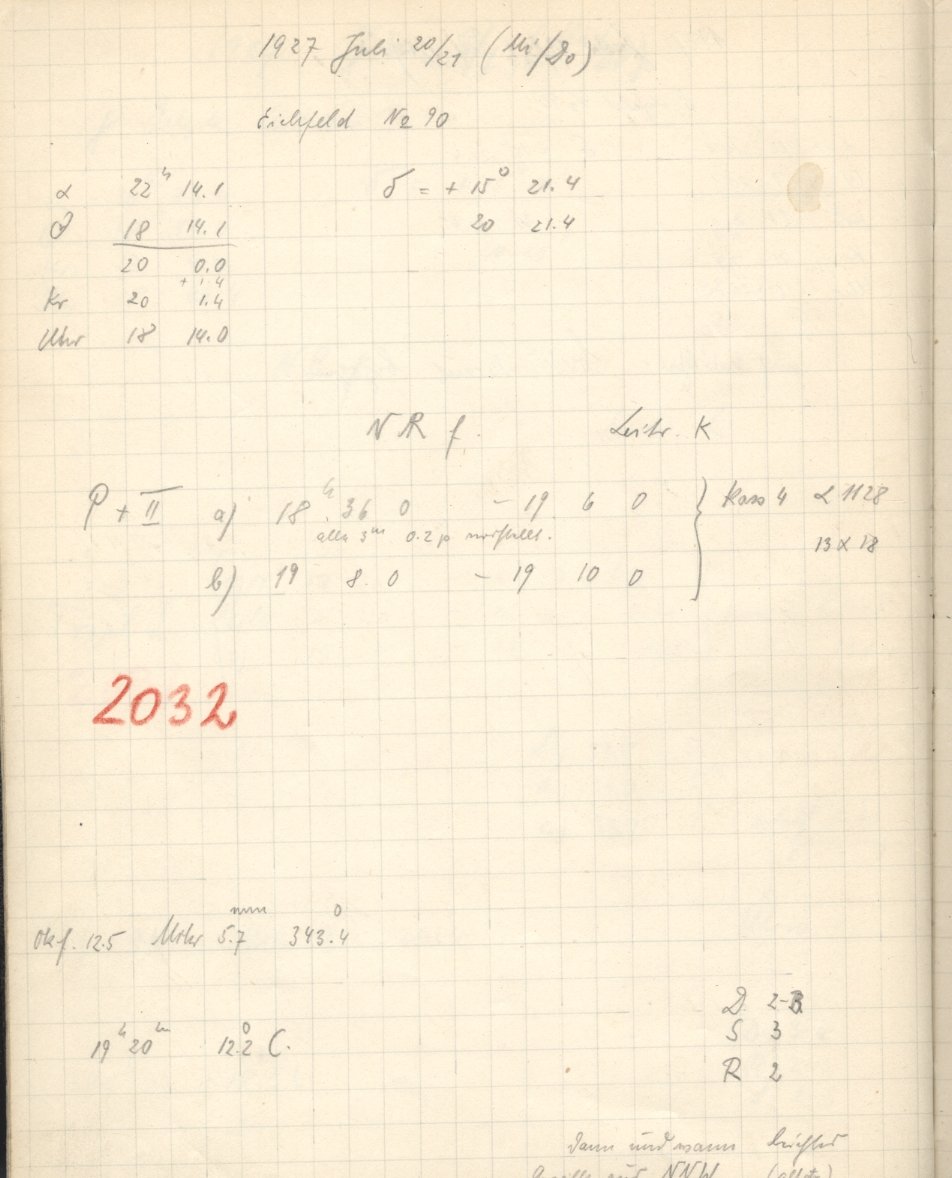 1927 Juli 20/21 (Mi/Do)
Eichfeld No 90
α 22h 14.1 δ = + 15° 21.4
18 14.1 20 21.4
20 0.0
+ 1.4
Kr 20 1.4
Uhr 18 14.0
N R f. Leitr. K
P + II a) 18h 36 0 – 19 6 0 } Kass 4 α 1128
alle 3m 0.2 p verstellt. 13 x 18
b) 19 8. 0 – 19 10 0
2032
mm 0
Okf. 12.5 Mikr 5.7 343.4
D. 2-3
19h 20m 12.2° C. S 3
R 2
dann und wann leichter
aus NNW